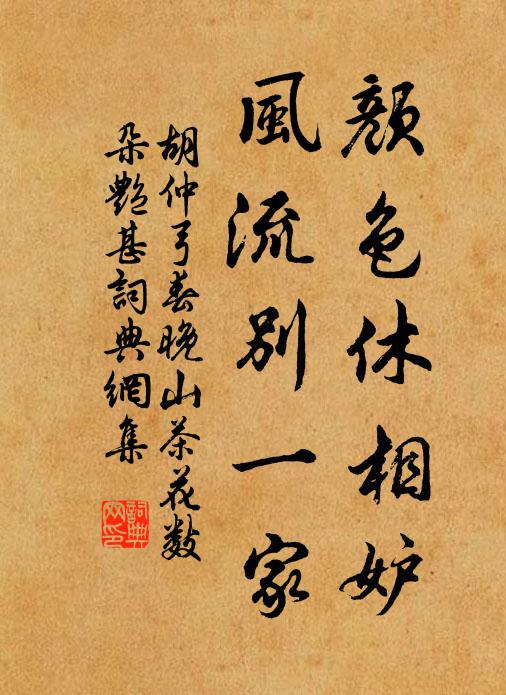 顏色休相妒
風流別一家
胡仲弓春晚山茶花數
朶艷甚詞典網集
詞典网印